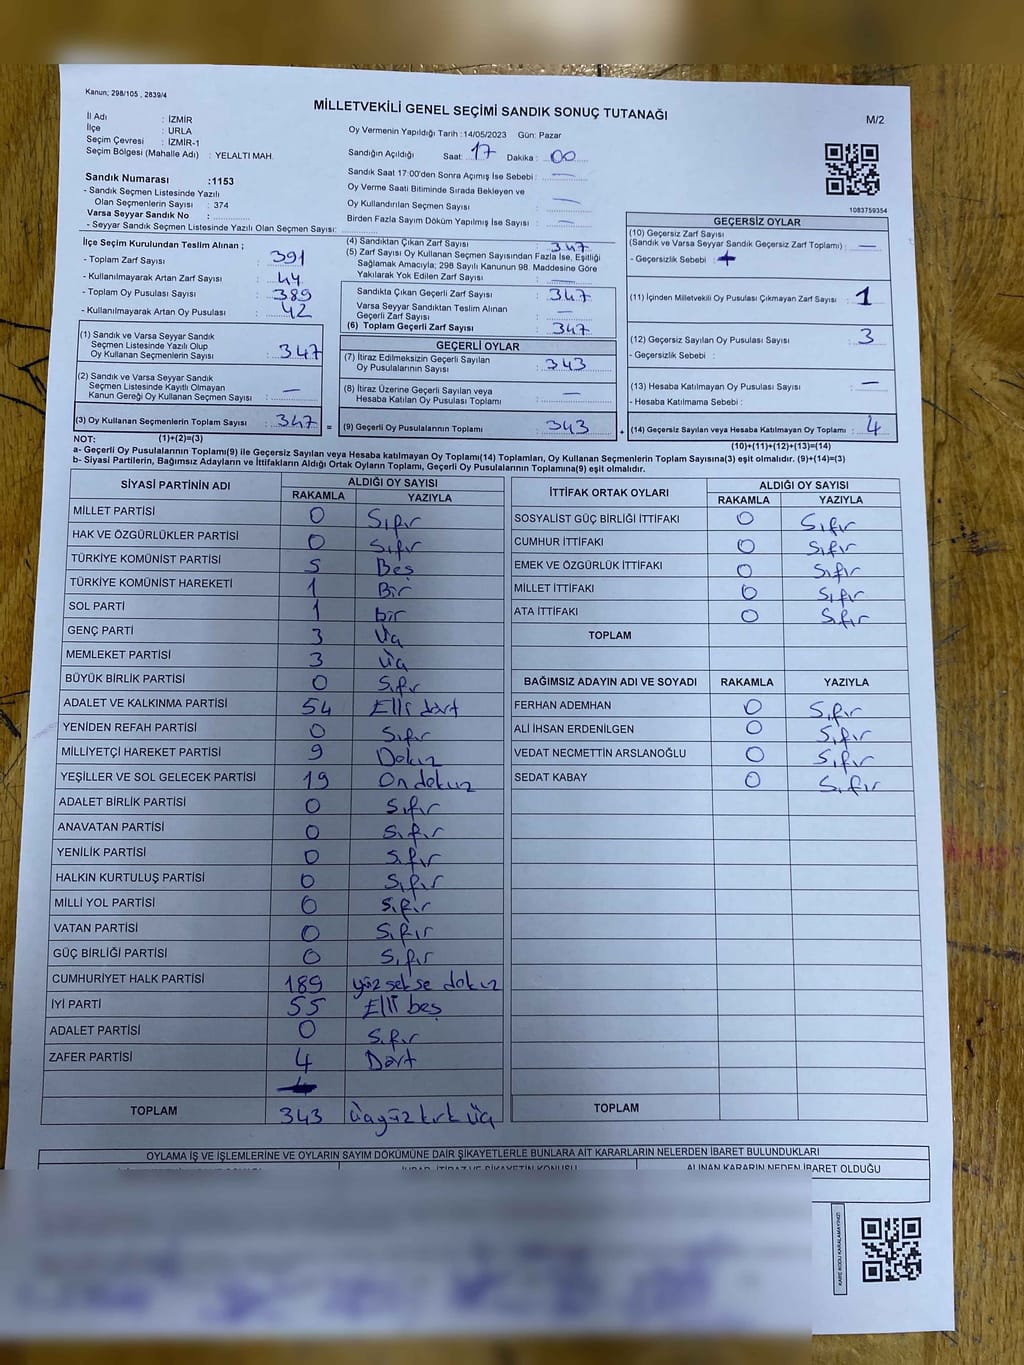 Kanun; 298/105 , 2839/4
MİLLETVEKİLİ GENEL SEÇİMİ SANDIK SONUÇ TUTANAĞI
M/2
İl Adı : İZMİR
İlçe : URLA
Seçim Çevresi : İZMİR-1
Seçim Bölgesi (Mahalle Adı) : YELALTI MAH.
Sandık Numarası :1153
- Sandık Seçmen Listesinde Yazılı
Olan Seçmenlerin Sayısı : 374
Varsa Seyyar Sandık No :
- Seyyar Sandık Seçmen Listesinde Yazılı Olan Seçmen Sayısı:
Oy Vermenin Yapıldığı Tarih :14/05/2023 Gün: Pazar
Sandığın Açıldığı Saat: 17 Dakika : 00
Sandık Saat 17:00'den Sonra Açımış İse Sebebi : —
Oy Verme Saati Bitiminde Sırada Bekleyen ve
Oy Kullandırılan Seçmen Sayısı : —
Birden Fazla Sayım Döküm Yapılmış İse Sayısı : —
1083759354
İlçe Seçim Kurulundan Teslim Alınan ;
- Toplam Zarf Sayısı : 391
- Kullanılmayarak Artan Zarf Sayısı : 44
- Toplam Oy Pusulası Sayısı : 389
- Kullanılmayarak Artan Oy Pusulası : 42
(1) Sandık ve Varsa Seyyar Sandık
Seçmen Listesinde Yazılı Olup
Oy Kullanan Seçmenlerin Sayısı : 347
(2) Sandık ve Varsa Seyyar Sandık
Seçmen Listesinde Kayıtlı Olmayan
Kanun Gereği Oy Kullanan Seçmen Sayısı : —
(3) Oy Kullanan Seçmenlerin Toplam Sayısı : 347 =
(4) Sandıktan Çıkan Zarf Sayısı : 347
(5) Zarf Sayısı Oy Kullanan Seçmen Sayısından Fazla İse, Eşitliği
Sağlamak Amacıyla; 298 Sayılı Kanunun 98. Maddesine Göre
Yakılarak Yok Edilen Zarf Sayısı : —
Sandıkta Çıkan Geçerli Zarf Sayısı : 347
Varsa Seyyar Sandıktan Teslim Alınan
Geçerli Zarf Sayısı : —
(6) Toplam Geçerli Zarf Sayısı : 347
GEÇERLİ OYLAR
(7) İtiraz Edilmeksizin Geçerli Sayılan
Oy Pusulalarının Sayısı : 343
(8) İtiraz Üzerine Geçerli Sayılan veya
Hesaba Katılan Oy Pusulası Toplamı : —
(9) Geçerli Oy Pusulalarının Toplamı : 343 +
GEÇERSİZ OYLAR
(10) Geçersiz Zarf Sayısı
(Sandık ve Varsa Seyyar Sandık Geçersiz Zarf Toplamı) : —
- Geçersizlik Sebebi :
(11) İçinden Milletvekili Oy Pusulası Çıkmayan Zarf Sayısı : 1
(12) Geçersiz Sayılan Oy Pusulası Sayısı : 3
- Geçersizlik Sebebi :
(13) Hesaba Katılmayan Oy Pusulası Sayısı : —
- Hesaba Katılmama Sebebi :
(14) Geçersiz Sayılan veya Hesaba Katılmayan Oy Toplamı : 4
NOT: (1)+(2)=(3) (10)+(11)+(12)+(13)=(14)
a- Geçerli Oy Pusulalarının Toplamı(9) ile Geçersiz Sayılan veya Hesaba Katılmayan Oy Toplamı(14) Toplamları, Oy Kullanan Seçmenlerin Toplam Sayısına(3) eşit olmalıdır. (9)+(14)=(3)
b- Siyasi Partilerin, Bağımsız Adayların ve İttifakların Aldığı Ortak Oyların Toplamı, Geçerli Oy Pusulalarının Toplamına(9) eşit olmalıdır.
SİYASİ PARTİNİN ADI ALDIĞI OY SAYISI
RAKAMLA YAZIYLA
MİLLET PARTİSİ 0 Sıfır
HAK VE ÖZGÜRLÜKLER PARTİSİ 0 Sıfır
TÜRKİYE KOMÜNİST PARTİSİ 5 Beş
TÜRKİYE KOMÜNİST HAREKETİ 1 Bir
SOL PARTİ 1 bir
GENÇ PARTİ 3 Üç
MEMLEKET PARTİSİ 3 Üç
BÜYÜK BİRLİK PARTİSİ 0 Sıfır
ADALET VE KALKINMA PARTİSİ 54 Elli dört
YENİDEN REFAH PARTİSİ 0 Sıfır
MİLLİYETÇİ HAREKET PARTİSİ 9 Dokuz
YEŞİLLER VE SOL GELECEK PARTİSİ 19 On dokuz
ADALET BİRLİK PARTİSİ 0 Sıfır
ANAVATAN PARTİSİ 0 Sıfır
YENİLİK PARTİSİ 0 Sıfır
HALKIN KURTULUŞ PARTİSİ 0 Sıfır
MİLLİ YOL PARTİSİ 0 Sıfır
VATAN PARTİSİ 0 Sıfır
GÜÇ BİRLİĞİ PARTİSİ 0 Sıfır
CUMHURİYET HALK PARTİSİ 189 yüz sekse dokuz
İYİ PARTİ 55 Elli beş
ADALET PARTİSİ 0 Sıfır
ZAFER PARTİSİ 4 Dört
TOPLAM 343 Üçyüz kırk üç
İTTİFAK ORTAK OYLARI ALDIĞI OY SAYISI
RAKAMLA YAZIYLA
SOSYALİST GÜÇ BİRLİĞİ İTTİFAKI 0 Sıfır
CUMHUR İTTİFAKI 0 Sıfır
EMEK VE ÖZGÜRLÜK İTTİFAKI 0 Sıfır
MİLLET İTTİFAKI 0 Sıfır
ATA İTTİFAKI 0 Sıfır
TOPLAM
BAĞIMSIZ ADAYIN ADI VE SOYADI RAKAMLA YAZIYLA
FERHAN ADEMHAN 0 Sıfır
ALİ İHSAN ERDENİLGEN 0 Sıfır
VEDAT NECMETTİN ARSLANOĞLU 0 Sıfır
SEDAT KABAY 0 Sıfır
TOPLAM
OYLAMA İŞ VE İŞLEMLERİNE VE OYLARIN SAYIM DÖKÜMÜNE DAİR ŞİKAYETLERLE BUNLARA AİT KARARLARIN NELERDEN İBARET BULUNDUKLARI
İHBAR, İTİRAZ VE ŞİKAYETİN KONUSU ALINAN KARARIN NEDEN İBARET OLDUĞU
KARE KODU KARALAMAYINIZ!